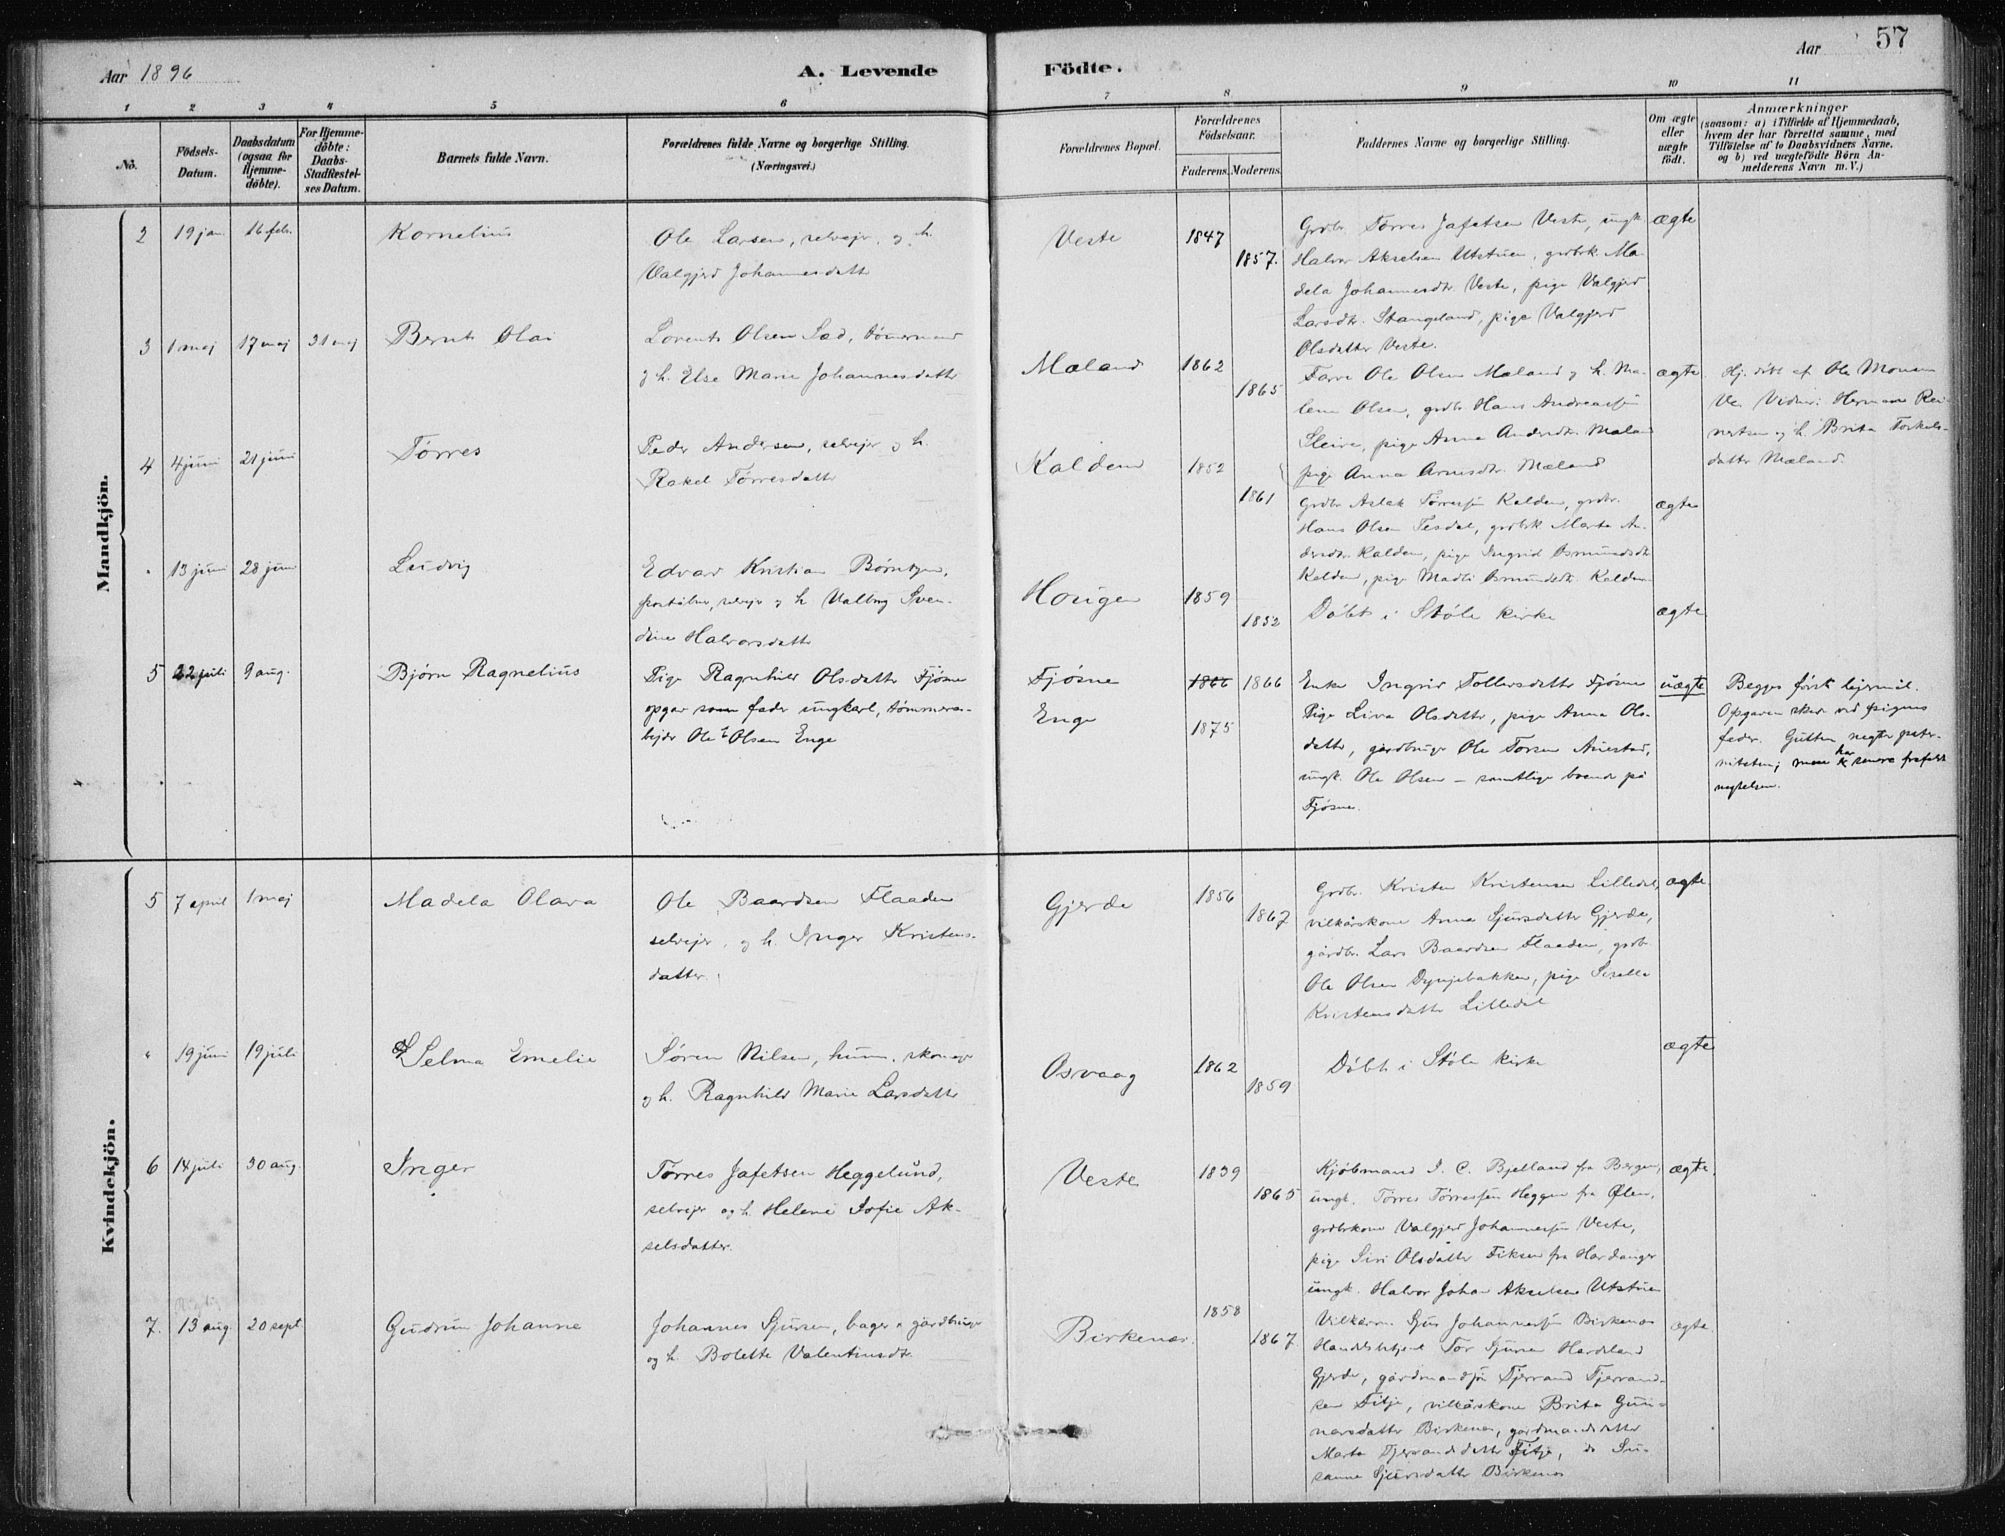 57
Aar 1896
A. Levende
Födte.
Aar
1 2 3 4 5 6 7 8 9 10 11
No.
Födsels-Datum.
Daabsdatum (ogsaa for Hjemme-döbte).
For Hjemme-döbte: Daabs-Stadfæstel-ses Datum.
Barnets fulde Navn.
Forældrenes fulde Navne og borgerlige Stilling.
(Næringsvei.)
Forældrenes Bopæl.
Forældrenes Födselsaar.
Faderens. Moderens.
Faddernes Navne og borgerlige Stilling.
Om ægte eller uægte födt.
Anmærkninger
(saasom: a) i Tilfælde af Hjemmedaab,
hvem der har forrettet samme, med
Tilföielse af to Daabsvidners Navne,
og b) ved uægtefödte Börn An-
melderens Navn m.V.)
Mandkjön.
2 19 jan. 16 feb. Kornelius
Ole Larsen, selvejer, og h.
Valgjerd Johannesdatter
Veste 1847 1857.
Grdbr. Tørres Jafetsen Veste, ungk.
Halvor Akselsen Utstuen, grdbrk. Ma-
dela Johannesdtr. Veste, pige Valgjerd
Larsdtr. Stangeland, pige Valgjerd
Olsdatter Veste.
ægte
3 1 maj 17 maj 31 maj Bernt Olai
Lorents Olsen Sæd, tømermand
og h. Else Marie Johannesdatter
Mæland 1862 1865
Farer Ole Olsen Mæland og h. Ma-
lene Olsen, grdbr. Hans Andreassen
Sleire, pige Anna Andersdtr. Mæland
pige Anna Arnesdtr. Mæland
ægte
Hj. døbt af Ole Monsen
Ve. Vidner: Herman Rei-
nertsen og h. Brita Torkels-
datter Mæland.
4 4 juni 21 juni Tørres
Peder Andersen, selvejer og h.
Rakel Tørresdatter
Kalden 1852 1861
Grdbr. Aslak Tørressen Kalden, grdbr.
Hans Olsen Tesdal, grdbrk. Marta An-
dersdtr. Kalden, pige Ingrid Osmundsdtr.
Kalden, pige Madli Osmundsdtr. Kalden
ægte
" 13 juni 28 juni Ludvig
Edvar Kristian Børntzen,
poståbner, selvejer og h. Valborg Sven-
dine Halvorsdatter
Hougen 1859 1852
Døbt i Støle kirke
ægte
5 22 juli 9 aug. Bjørn Ragnelius
Pige Ragnhild Olsdatter Fjøsne
opgav som fader ungkarl, tømmerar-
bejder Ole Olsen Enge
Fjøsne
Enge
1866 1866
1875
Enke Ingrid Tollevsdatter Fjøsne
Pige Liva Olsdatter, pige Anna Ols-
datter, gårdbruger Ole Torsen Auestad,
ungk. Ole Olsen — samtlige boende på
Fjøsne.
uægte
Begges første lejermål.
Opgaven skeer ved pigens
fader. Gutten negter pater-
niteten; men har senere frafaldt
negtelsen.
Kvindekjön.
5 7 april 1 maj Madela Olava
Ole Baardsen Flaaden
selvejer, og h. Inger Kristens-
datter.
Gjerde 1856 1867
Grdbr. Kristen Kristensen Lilledal,
vilkårskone Anna Sjursdatter Gjerde,
gårdbr. Lars Baardsen Flaaden, grdbr.
Ole Olsen Dynjebakken, pige Sisella
Kristensdatter Lilledal
ægte
" 19 juni 19 juli Selma Emelie
Søren Nilsen, husm. skomager
og h. Ragnhild Marie Larsdatter
Osvaag 1862 1859
Døbt i Støle kirke
ægte
6 14 juli 30 aug. Inger
Tørres Jafetsen Heggelund,
selvejer og h. Helene Sofie Ak-
selsdatter.
Veste 1839 1865
Kjøbmand I. C. Bjelland fra Bergen,
ungk. Tørres Tørressen Heggen fra Ølen,
grdbrkone Valgjerd Johannessen Veste,
pige Siri Olsdatter Fiksen fra Hardanger
ungk. Halvor Johan Akselsen Utstuen
ægte.
7. 13 aug. 20 sept Gudrun Johanne
Johannes Sjursen, bager & gårdbruger
og h. Bolette Valentinsdtr.
Birkenæs. 1858 1867
Vilkårm. Sjur Johannessen Birkenæs
Handelsbetjent Tor Sjursen Hardeland
Gjerde, gårdmandssøn Tjerrand Tjerrand-
sen Fitje, vilkårskone Brita Gun-
narsdatter Birkenæs, gårdmandsdatter
Marta Tjerrandsdatter Fitje, do Su-
sanne Sjursdatter Birkenæs
ægte